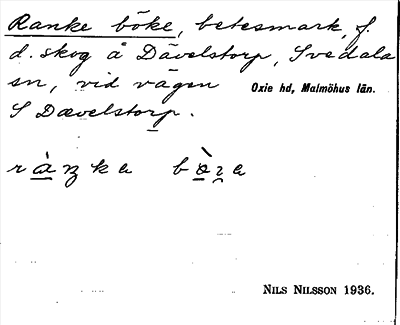 Ranke böke, betesmark, f.
d. skog å Dävelstorp, Svedala
sn, vid vägen
Oxie hd, Malmöhus län.
S Dævelstorp.
NILS NILSSON 1936.